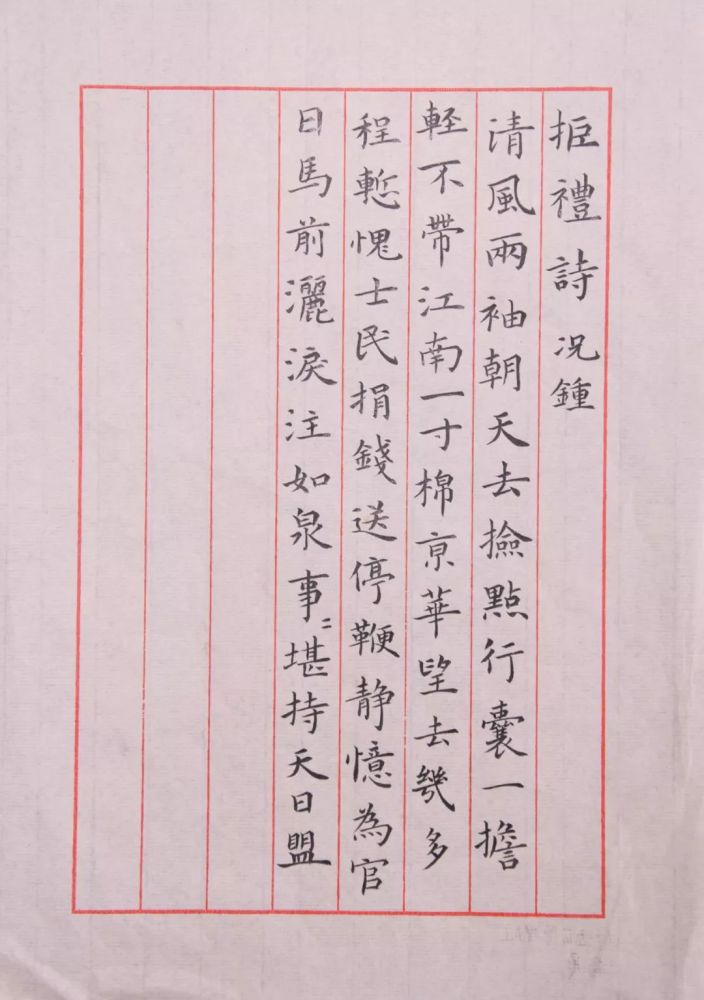 拒禮詩 况鍾
清風兩袖朝天去撿點行囊一擔
輊不帶江南一寸棉亰華望去幾多
程慙愧士民捐錢送停鞭静憶為官
日馬前灑淚注如泉事〻堪持天日盟